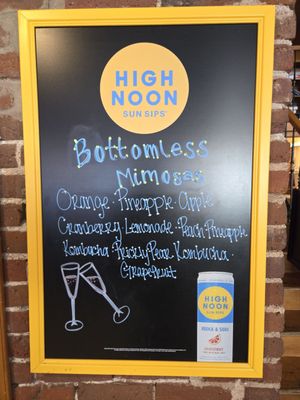 HIGH
NOON
SUN SIPS
Bottomless
Mimosas
Orange · Pineapple · Apple
Cranberry Lemonade · Peach Pineapple
Kombucha · Prickly Pear Kombucha
Grapefruit
HIGH
NOON
VODKA & SODA